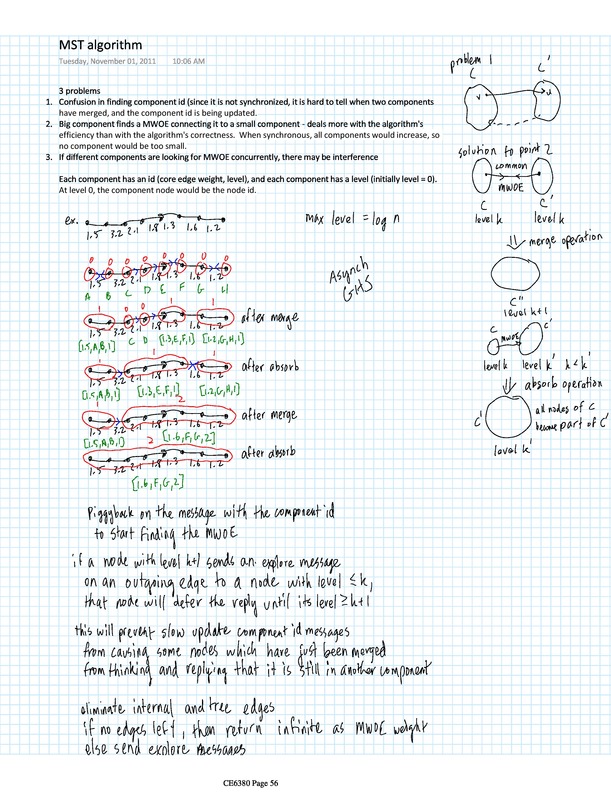 MST algorithm
Tuesday, November 01, 2011 10:06 AM
3 problems
1. Confusion in finding component id (since it is not synchronized, it is hard to tell when two components
have merged, and the component id is being updated.
2. Big component finds a MWOE connecting it to a small component - deals more with the algorithm's
efficiency than with the algorithm's correctness. When synchronous, all components would increase, so
no component would be too small.
3. If different components are looking for MWOE concurrently, there may be interference
Each component has an id (core edge weight, level), and each component has a level (initially level = 0).
At level 0, the component node would be the node id.
problem 1
C C'
v u
solution to point 2
common
MWOE
C C'
level k level k
merge operation
C"
level k+1
C MWOE C'
level k level k' k<k'
absorb operation
C' all nodes of C
become part of C'
level k'
ex.
1.5 3.2 2.1 1.8 1.3 1.6 1.2
max level = log n
Asynch
GHS
0 0 0 0 0 0 0 0
1.5 3.2 2.1 1.8 1.3 1.6 1.2
A B C D E F G H
1 0 0 1 1
1.5 3.2 2.1 1.8 1.3 1.6 1.2 after merge
[1.5,A,B,1] C D [1.3,E,F,1] [1.2,G,H,1]
1 1 1
1.5 3.2 2.1 1.8 1.3 1.6 1.2 after absorb
[1.5,A,B,1] [1.3,E,F,1] [1.2,G,H,1]
1 2
1.5 3.2 2.1 1.8 1.3 1.6 1.2 after merge
[1.5,A,B,1] [1.6,F,G,2]
2
1.5 3.2 2.1 1.8 1.3 1.6 1.2 after absorb
[1.6,F,G,2]
Piggyback on the message with the component id
to start finding the MWOE
if a node with level k+1 sends an explore message
on an outgoing edge to a node with level ≤ k,
that node will defer the reply until its level ≥ k+1
this will prevent slow update component id messages
from causing some nodes which have just been merged
from thinking and replying that it is still in another component
eliminate internal and tree edges
if no edges left, then return infinite as MWOE weight
else send explore messages
CE6380 Page 56